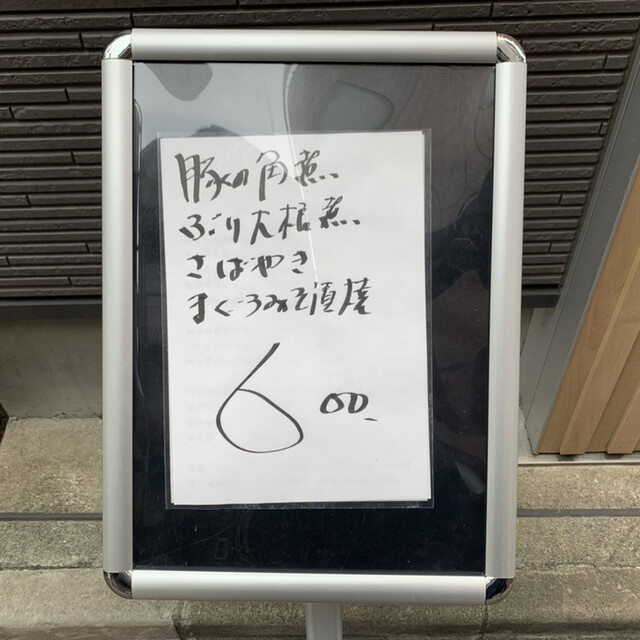 豚の角煮
ぶり大根煮
さばやき
まぐろみそ漬焼
600